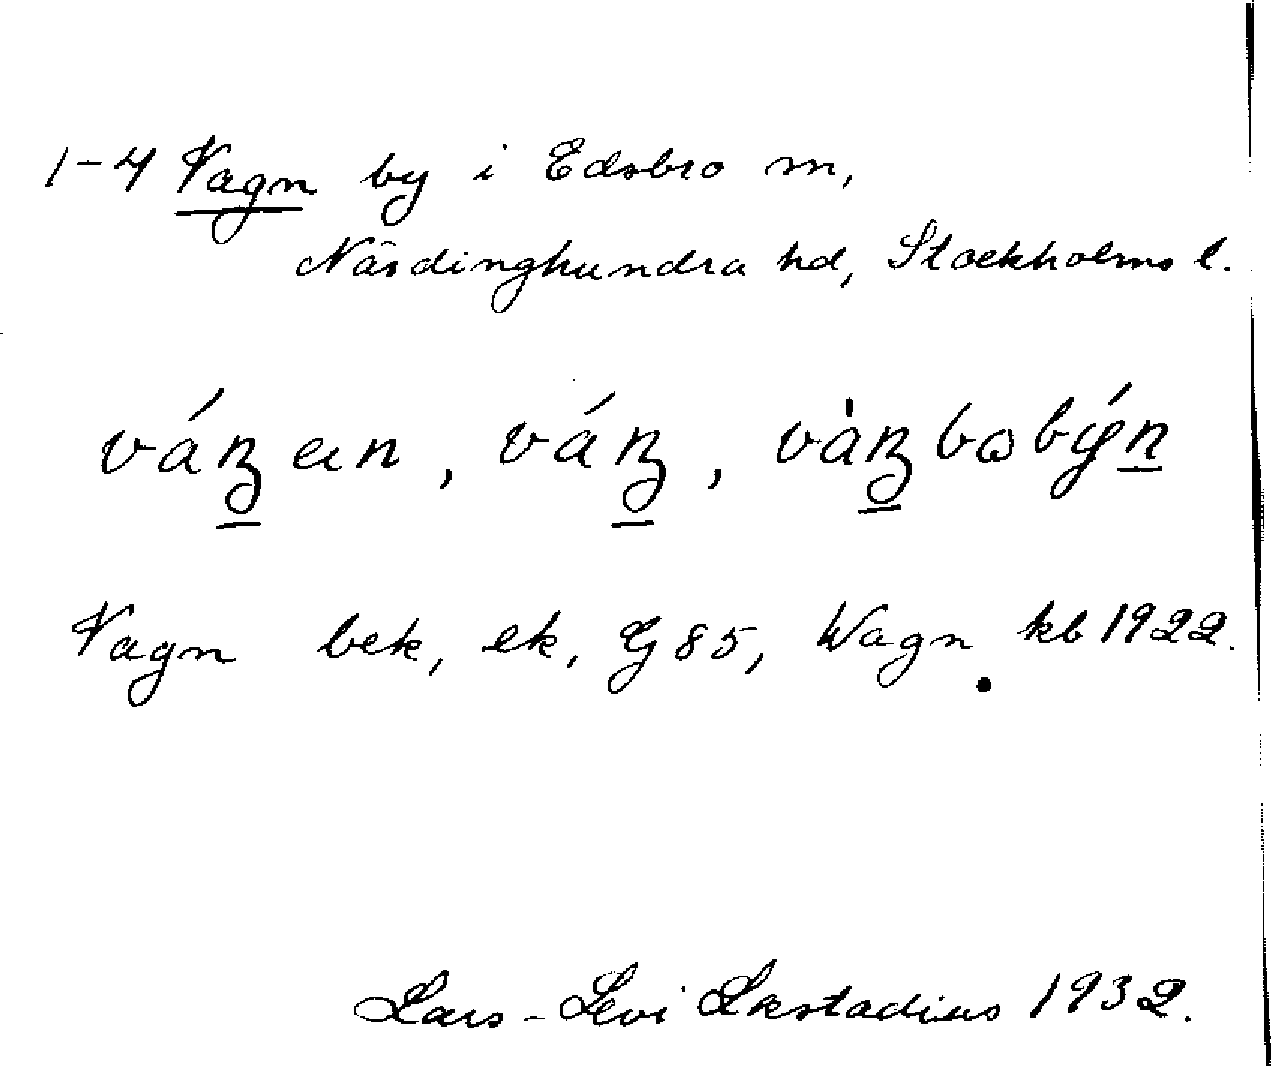 1-4 Vagn by i Edsbro sn,
Närdinghundra hd, Stockholms l.
váŋ̲an, váŋ̲, vàŋ̲bɷbýn̲
Vagn bek, ek, G 85, Wagn kb 1922.
Lars-Levi Læstadius 1932.